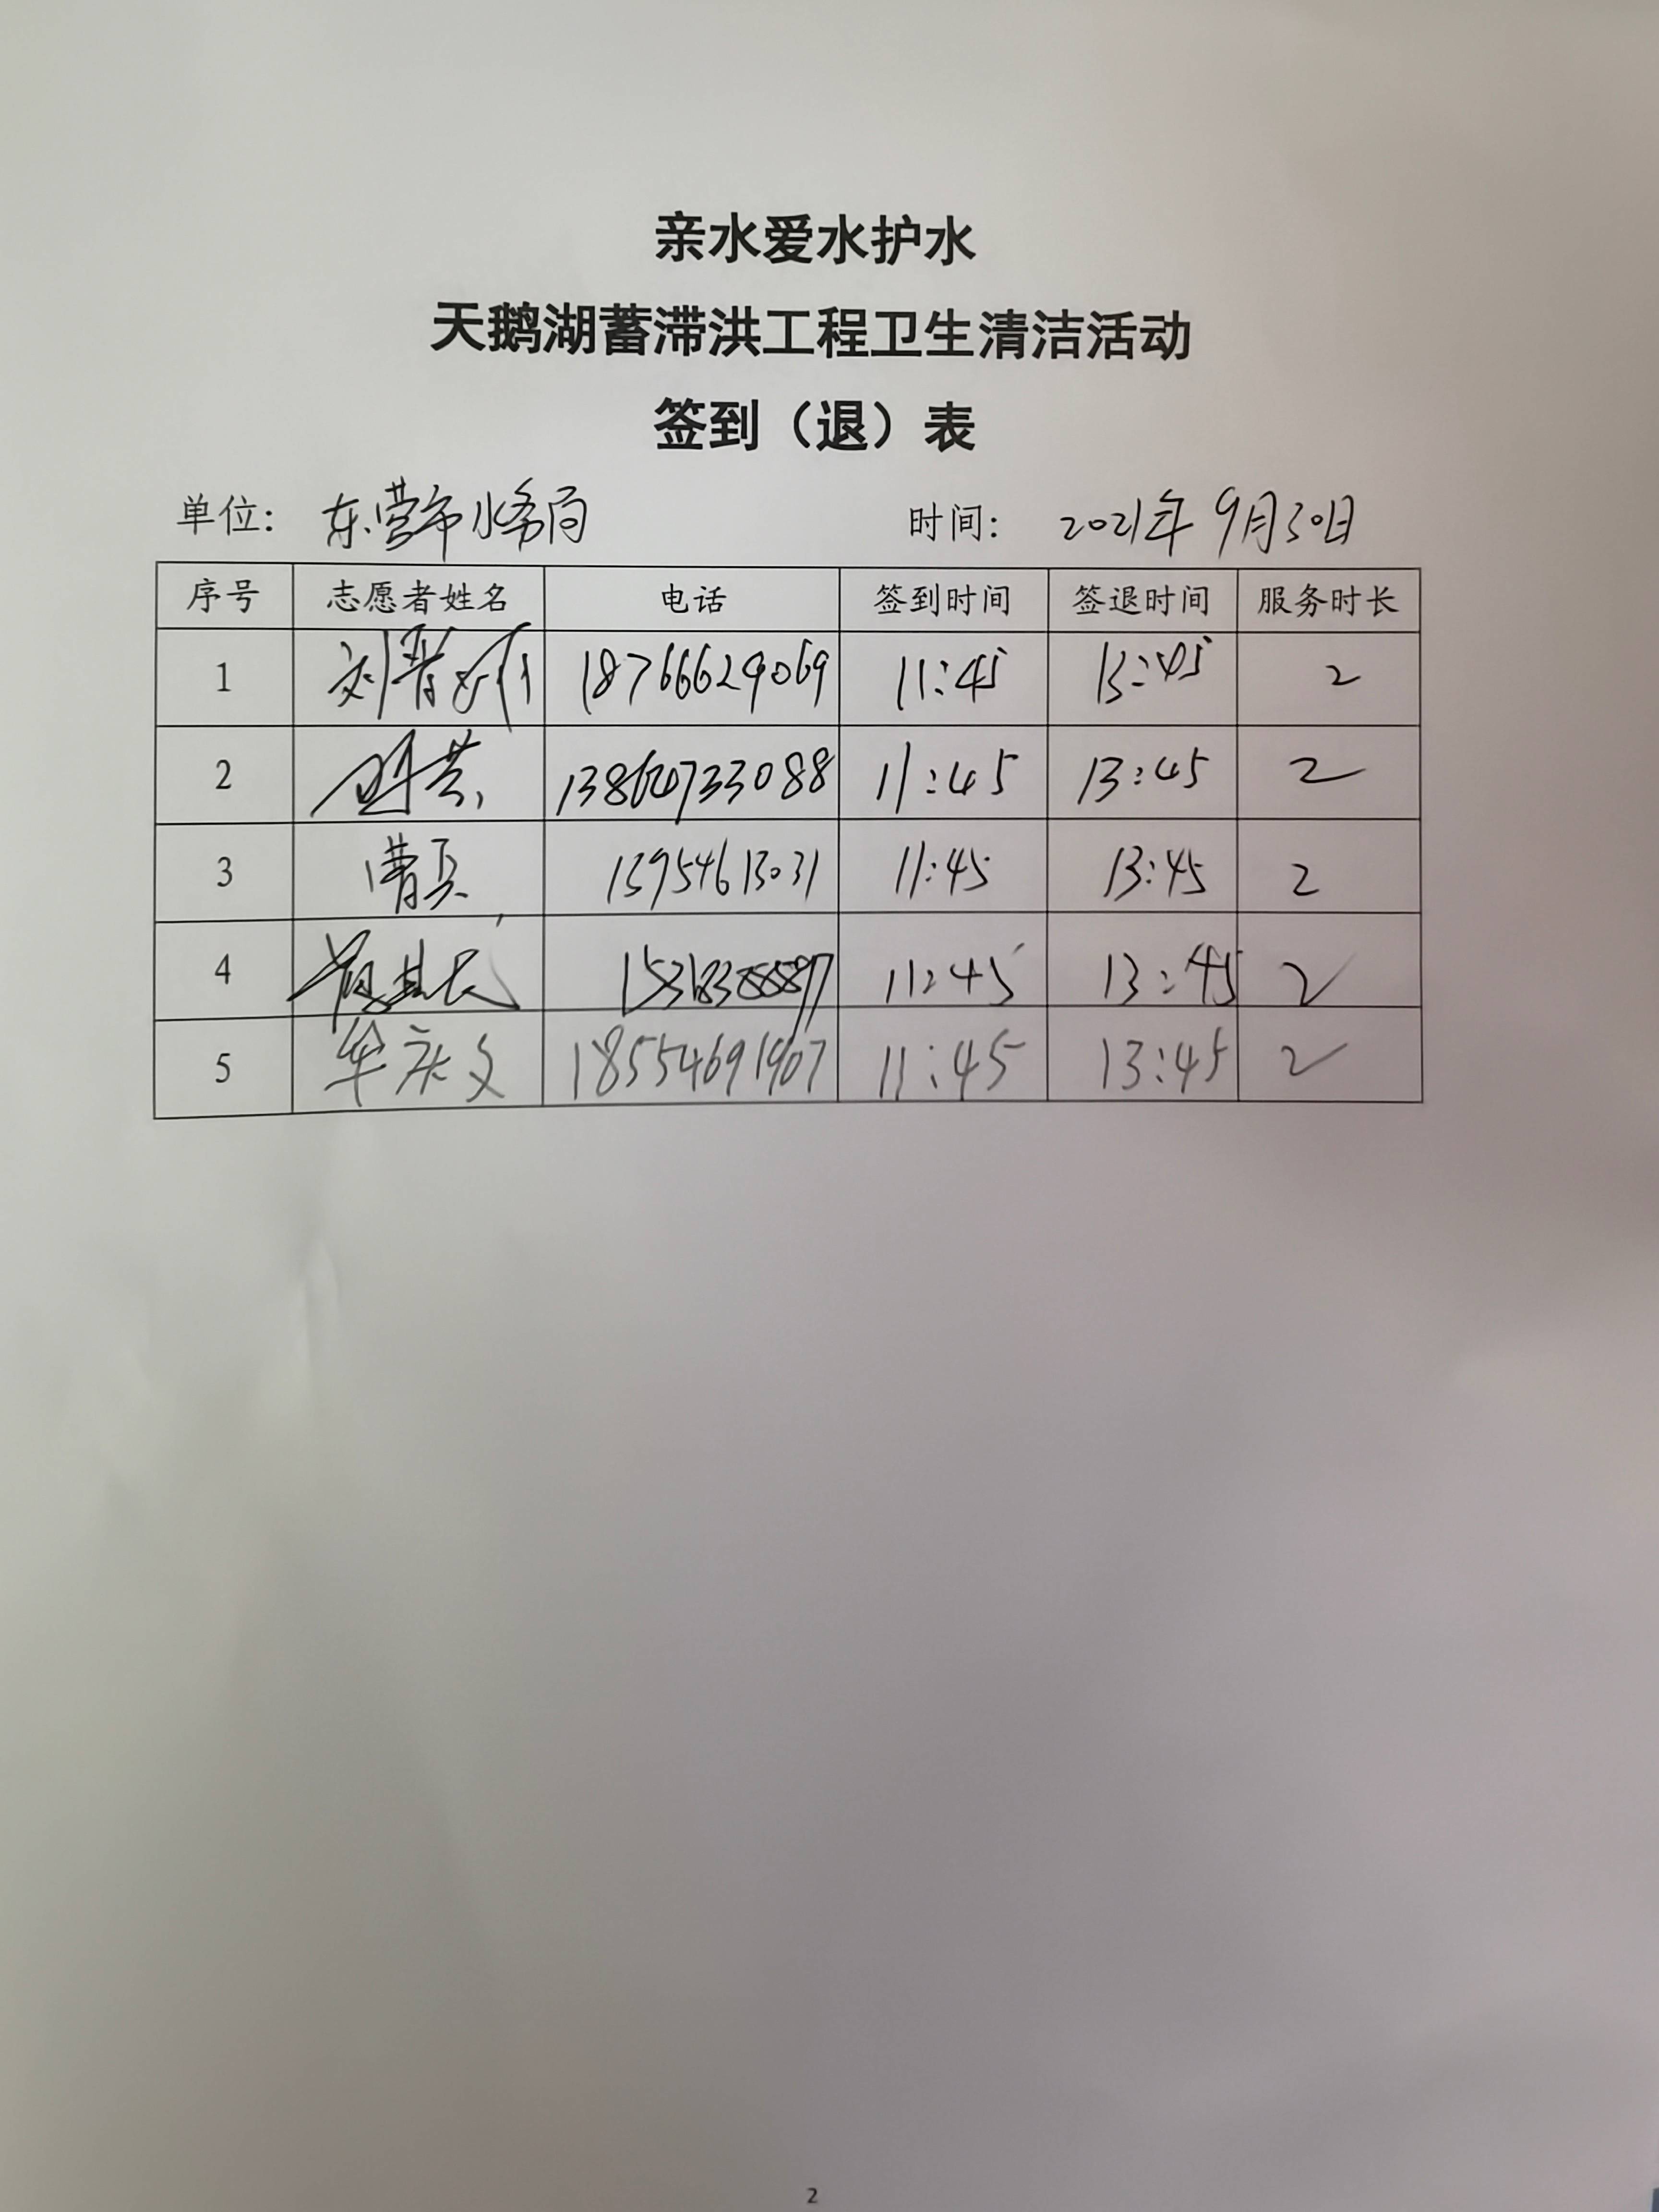 亲水爱水护水
天鹅湖蓄滞洪工程卫生清洁活动
签到（退）表
单位: 东营市水务局 时间: 2021年9月30日
序号 志愿者姓名 电话 签到时间 签退时间 服务时长
1 刘 18766629069 11:45 13:45 2
2 11:45 13:45 2
3 曹兵 13954613031 11:45 13:45 2
4 11:45 13:45 2
5 牟庆文 18554691907 11:45 13:45 2
2